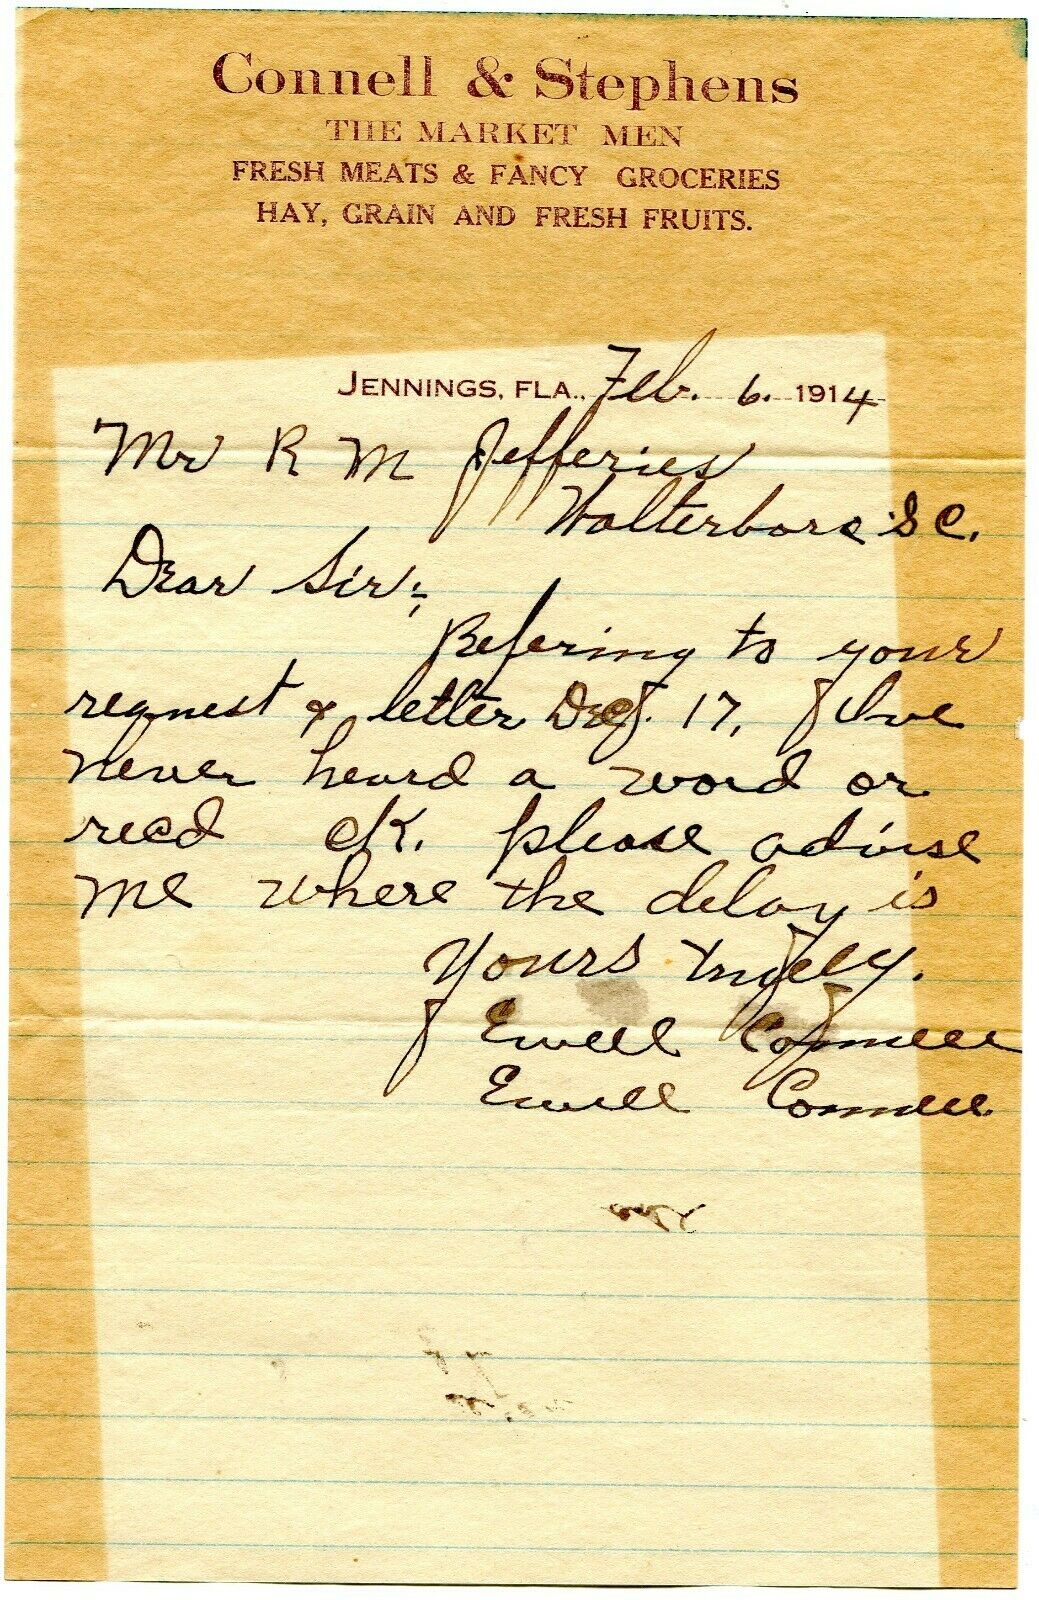 Connell & Stephens
THE MARKET MEN
FRESH MEATS & FANCY GROCERIES
HAY, GRAIN AND FRESH FRUITS.
JENNINGS, FLA., Feb. 6. 1914
Mr R M Jefferies
Walterboro S C.
Dear Sir:
Refering to your
request & letter Dec. 17, I have
never heard a word or
recd ck. please advise
me where the delay is
Yours truely.
Ewell Connell
Ewell Connell